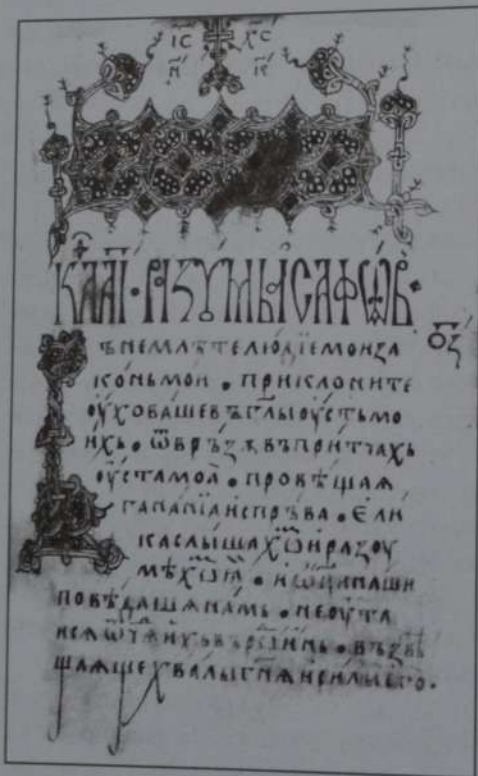 ІС ХС
НИ КА
КА҃А҃І · РАЗꙊМЫ АСАФѠВ ·
О҃З
Вънемлѣте людїе мои за
конь мои · приклоните
ѹхо ваше въ гл҃ы ѹсть мо
ихь · ѿврьзѫ въ притчахь
ѹста моꙗ · провѣщаѧ
гананїа испрьва · Ели
ка слышахѡⷨ и разѹ
мѣхѡⷨ ꙗ · и ѡц҃и наши
повѣдашѧ намь ·  не ѹта
исѧ ѿ чѧдь ихь въ рѡⷣ инь · възвѣ
щаѧще хвалы гн҃ѧ и силы его ·